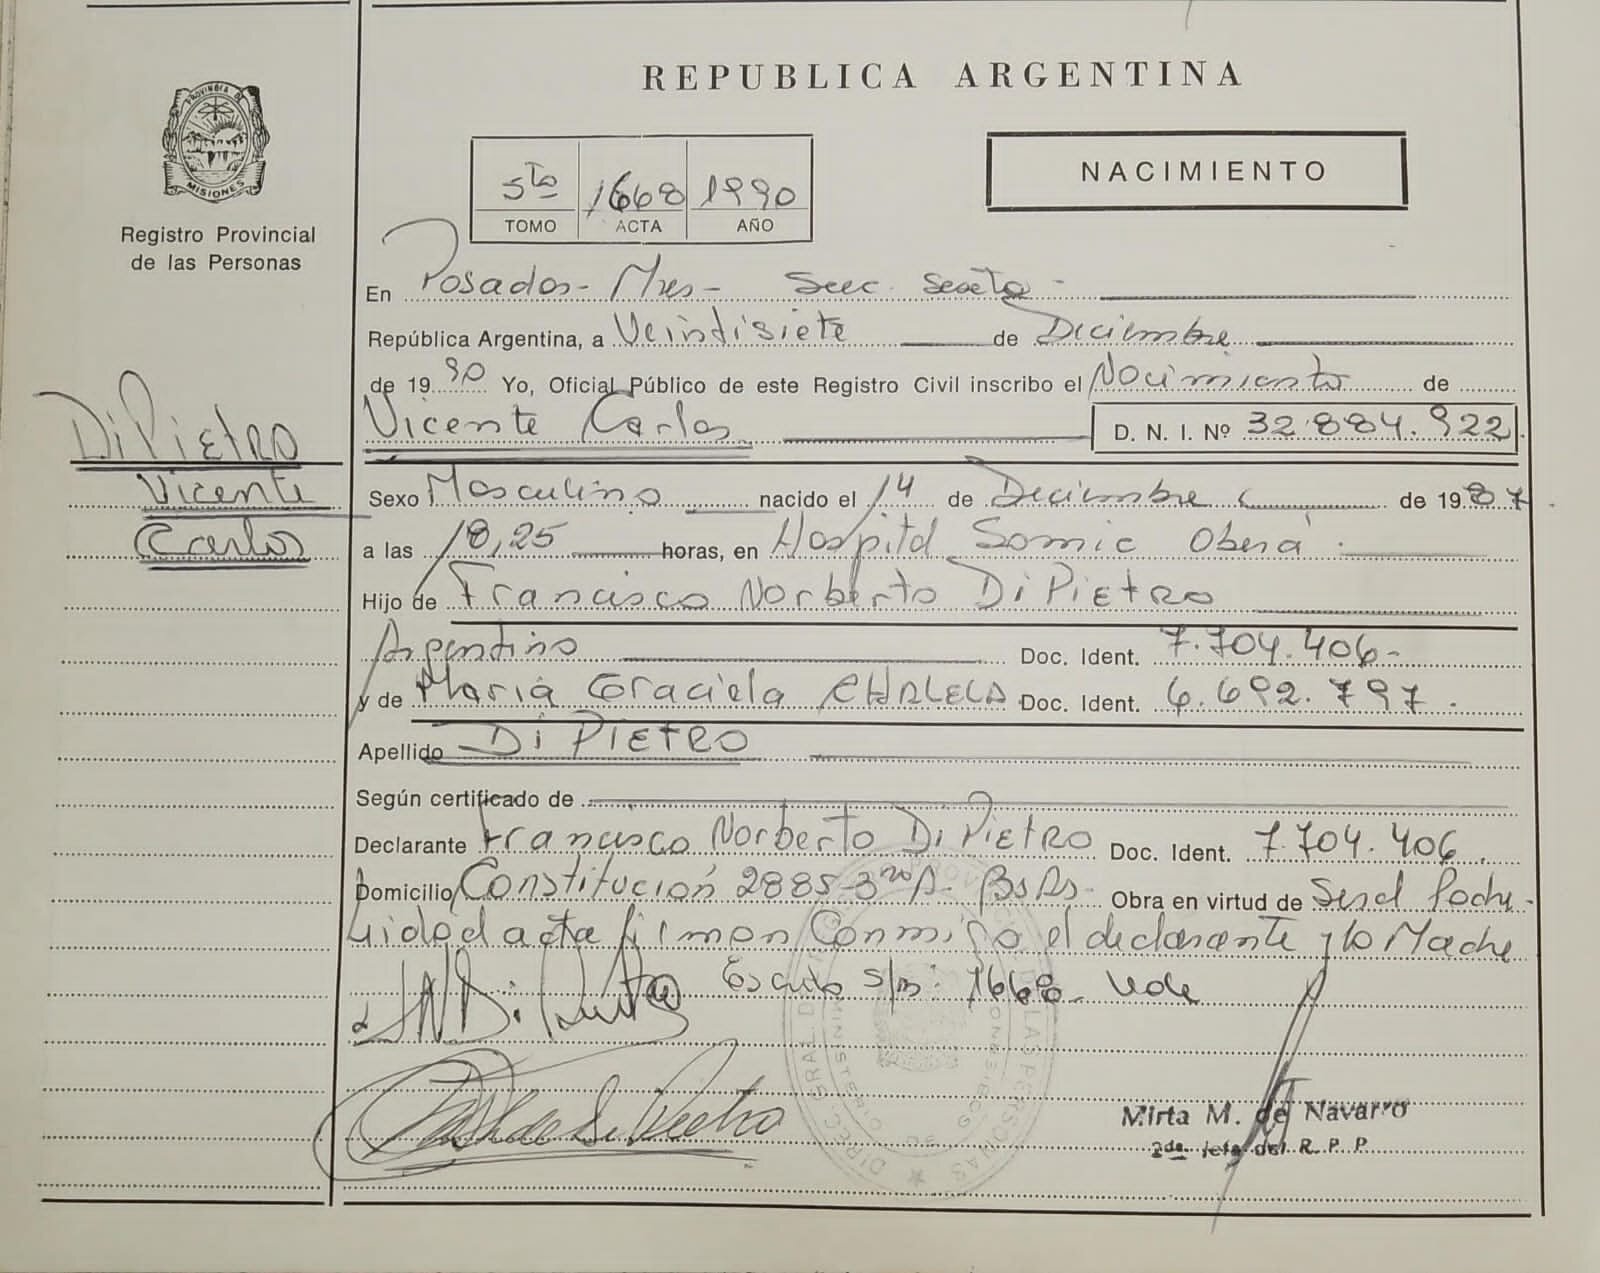 REPUBLICA ARGENTINA
PROVINCIA DE
MISIONES
Registro Provincial
de las Personas
5to 1668 1990
TOMO ACTA AÑO
NACIMIENTO
En Posadas - Mnes - Secc. Sexta -
República Argentina, a Veintisiete de Diciembre
de 1990 Yo, Oficial Público de este Registro Civil inscribo el Nacimiento de
Vicente Carlos D. N. I. Nº 32.884.922
Di PIETRO
Vicente
Carlos
Sexo Masculino nacido el 14 de Diciembre de 1987
a las 18,25 horas, en Hospital Samic Oberá.
Hijo de Francisco Norberto Di PIETRO
Argentino Doc. Ident. 7.704.406-
y de María Graciela Doc. Ident. 6.692.797.
Apellido Di PIETRO
Según certificado de
Declarante Francisco Norberto Di PIETRO Doc. Ident. 7.704.406.
Domicilio Constitución 2885-3ro A- Bs As- Obra en virtud de
acta firman Conmigo el declarante y la Madre
1668. Vale
Mirta M. de Navarro
2da. Jefa del R. P. P.